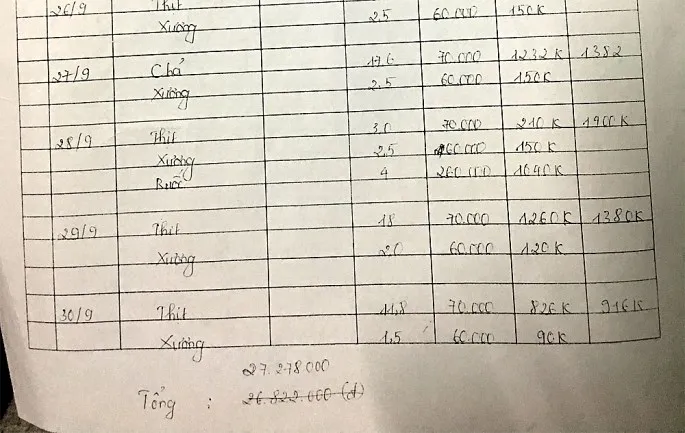 26/9 Thịt
Xương 2,5 60.000 150K
27/9 Chả 17,6 70.000 1232K 1382
Xương 2,5 60.000 150K
28/9 Thịt 3,0 70.000 210K 1900K
Xương 2,5 60.000 150K
4 260.000 1040K
29/9 Thịt 18 70.000 1260K 1380K
Xương 2,0 60.000 120K
30/9 Thịt 11,8 70.000 826K 916K
Xương 1,5 60.000 90K
27.278.000
Tổng : 26.822.000 (đ)